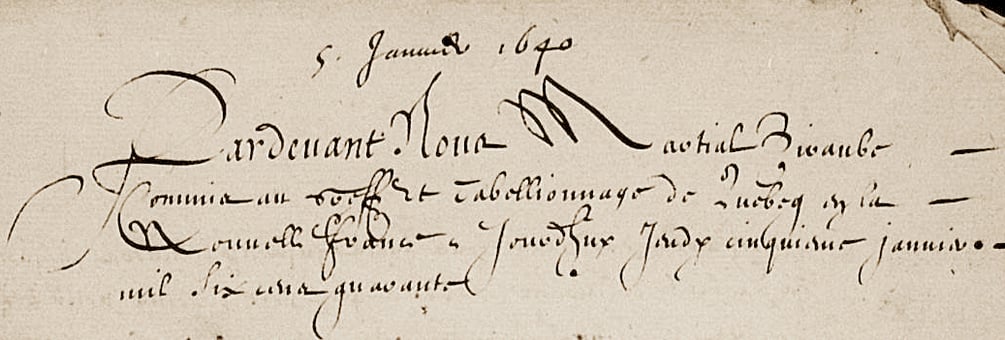 5. Januier 1640
Pardeuant Nous Martial Piraube
Commis au greffe et Tabellionnage de Quebeq en la
Nouuelle france, Jourdhuy Jeudy cinquiesme januier
mil six cens quarante